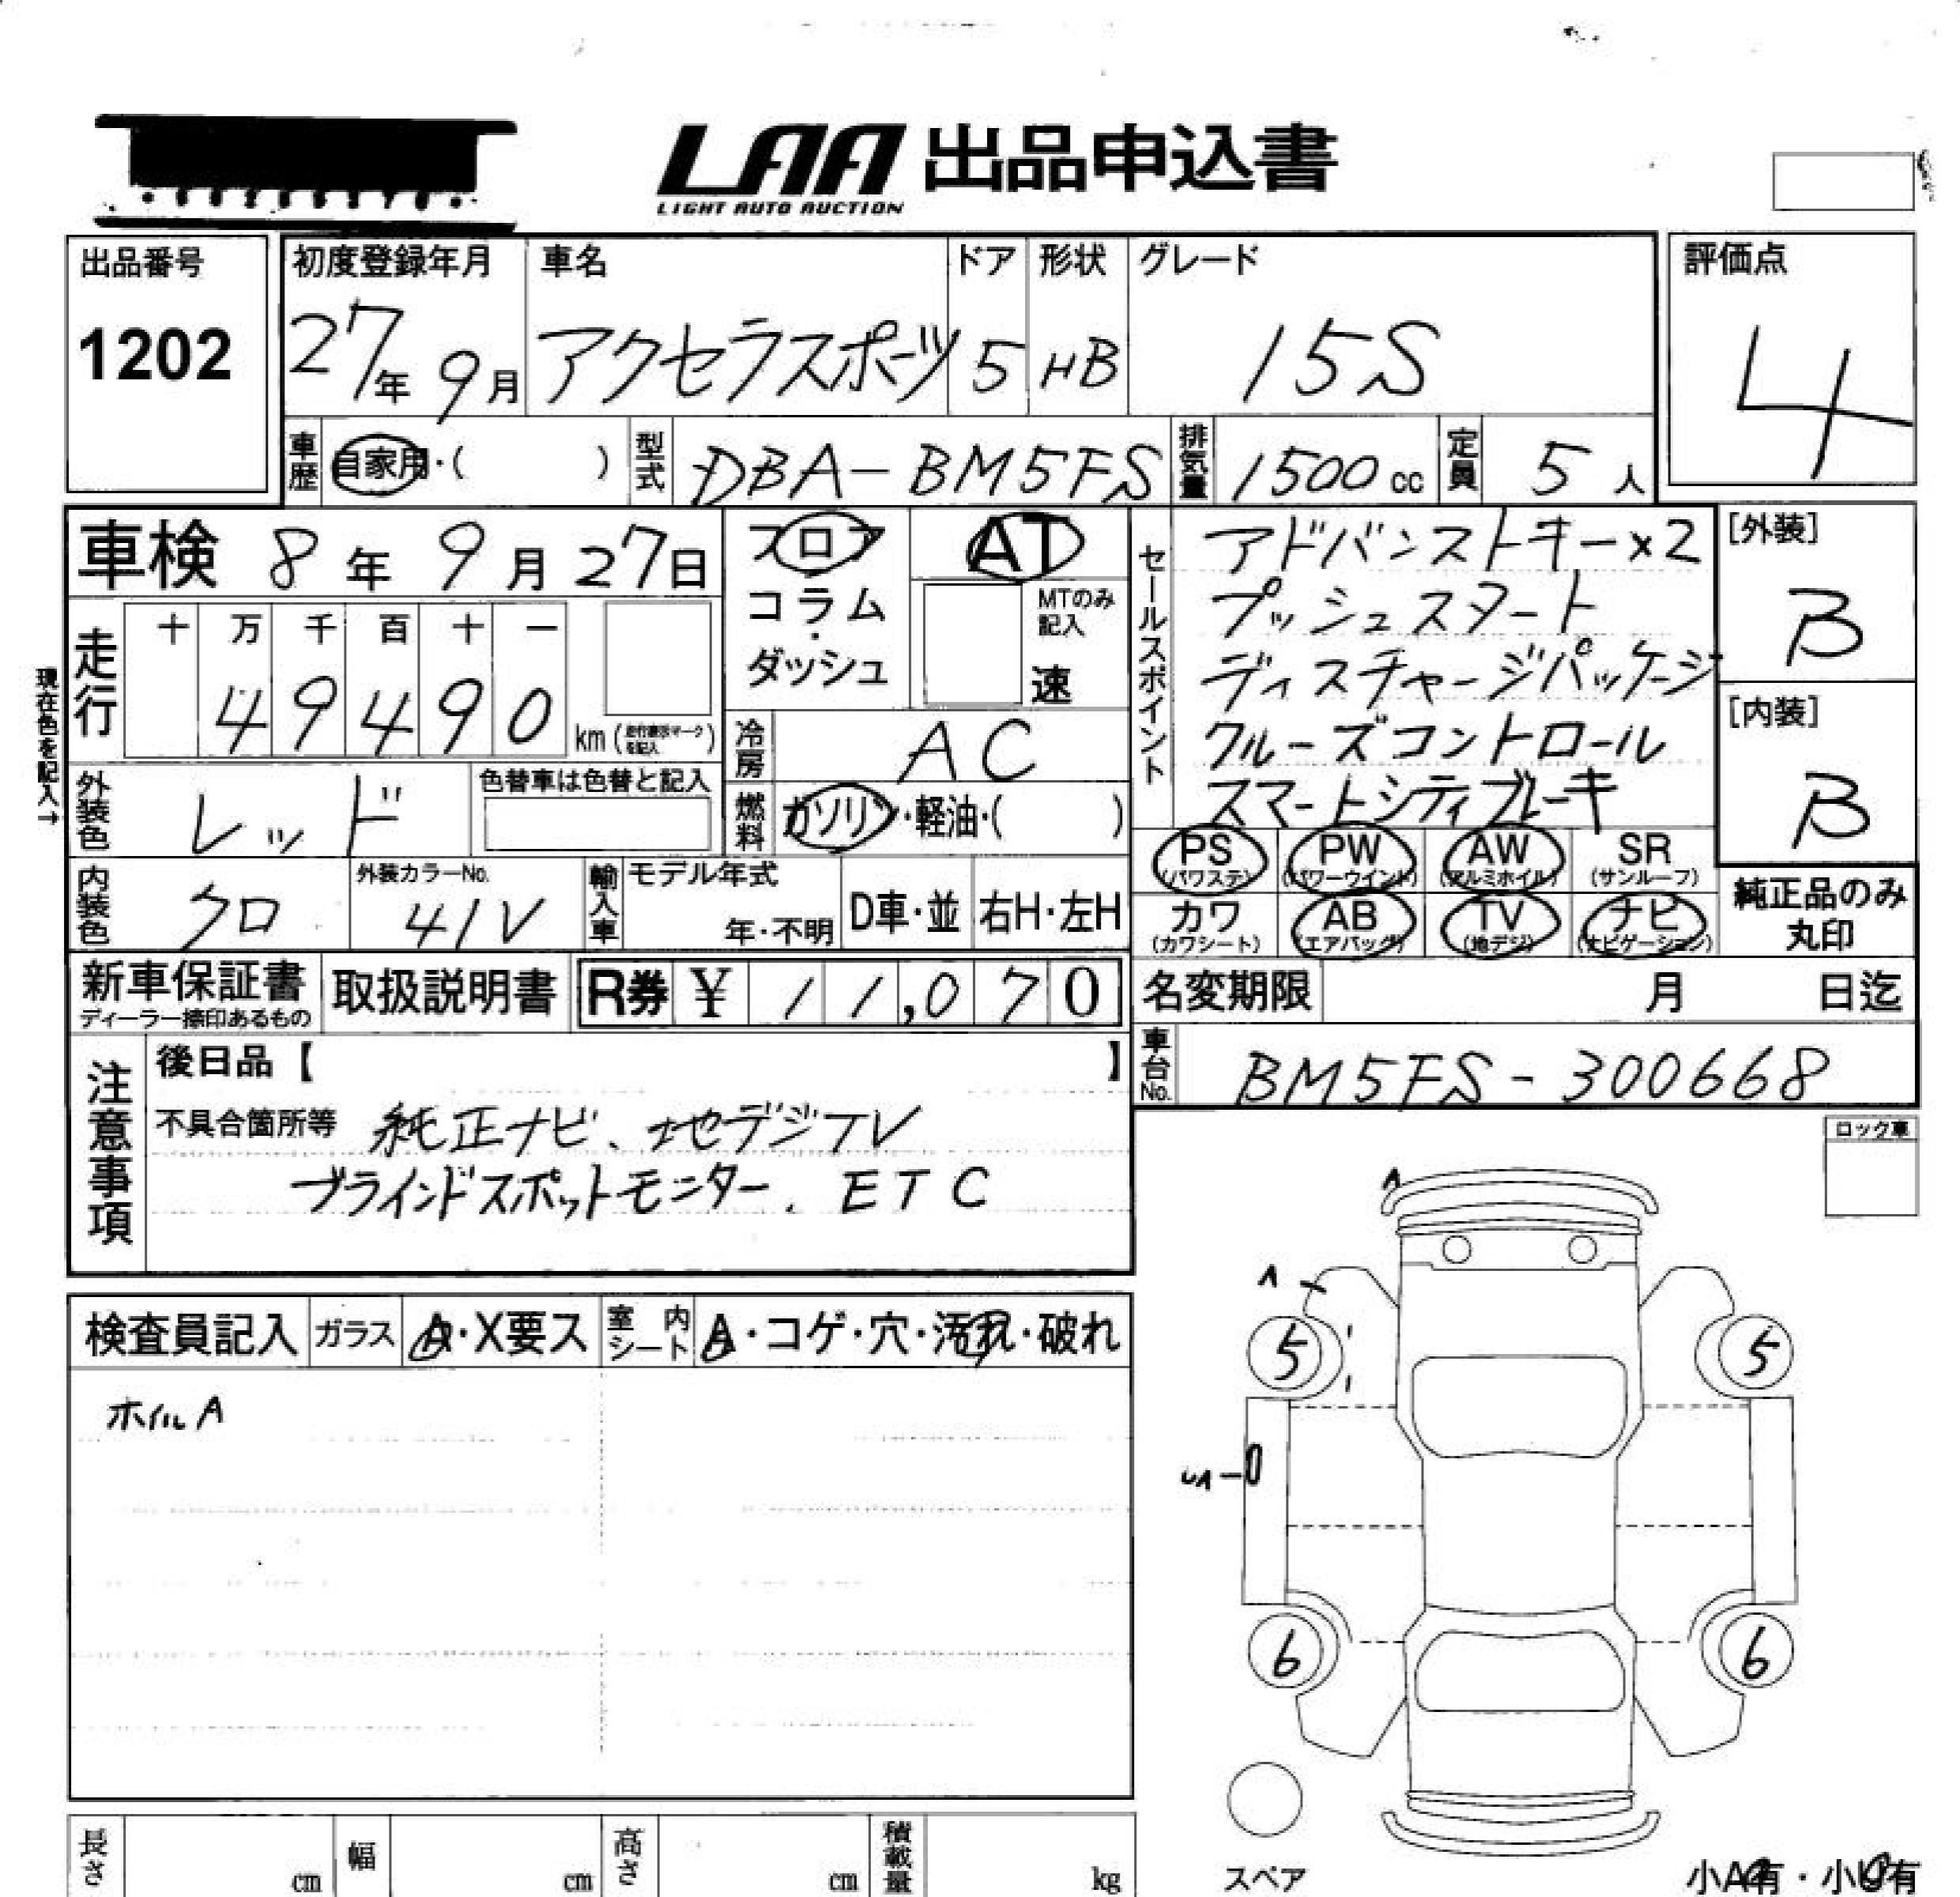 LAA 出品申込書
LIGHT AUTO AUCTION
出品番号
1202
初度登録年月
27年 9月
車名
アクセラスポーツ
ドア
5
形状
HB
グレード
15S
評価点
4
車歴 自家用・( )
型式 DBA-BM5FS
排気量 1500 cc
定員 5 人
車検 8年 9月 27日
走行
十 万 千 百 十 一
4 9 4 9 0 km(走行表示マークを記入)
現在色を記入→
外装色 レッド
色替車は色替と記入
内装色 クロ
外装カラーNo.
41V
フロア・コラム・ダッシュ
AT
MTのみ記入
速
冷房 AC
燃料 ガソリン・軽油・( )
輸入車
モデル年式
年・不明
D車・並
右H・左H
セールスポイント
アドバンストキー×2
プッシュスタート
ディスチャージパッケージ
クルーズコントロール
スマートシティブレーキ
[外装]
B
[内装]
B
PS (パワステ) PW (パワーウインド) AW (アルミホイル) SR (サンルーフ)
カワ (カワシート) AB (エアバッグ) TV (地デジ) ナビ (ナビゲーション)
純正品のみ
丸印
新車保証書
ディーラー捺印あるもの
取扱説明書
R券 ¥ 11,070
名変期限 月 日迄
車台No. BM5FS-300668
注意事項
後日品【 】
不具合箇所等 純正ナビ、地デジTV
ブラインドスポットモニター、ETC
ロック車
検査員記入
ガラス A・X要ス
室内シート A・コゲ・穴・汚れ・破れ
ホイルA
A
A
5
5
A
6
6
スペア
小A有・小U有
長さ cm
幅 cm
高さ cm
積載量 kg